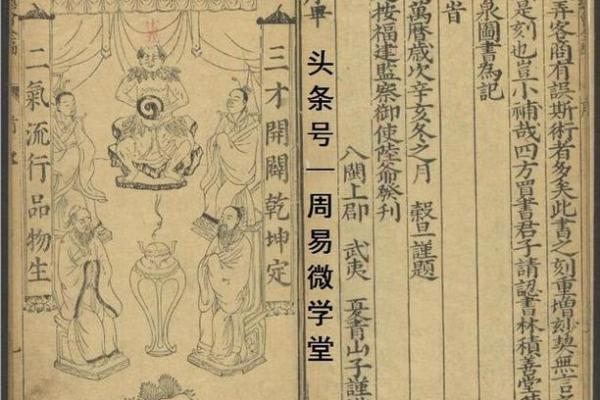 弄客商有誤斯術者多矣此書之刻重增妙契無言
是刻也豈小補哉四方買書君子請認書林積善堂
泉圖書為記
旹
萬曆歲次辛亥冬之月 穀旦謹題
按福建監察御使陸爺發刊
八閩上郡 武夷 青山子謹
头条号—周易微学堂
三才開闢乾坤定
二氣流行品物生